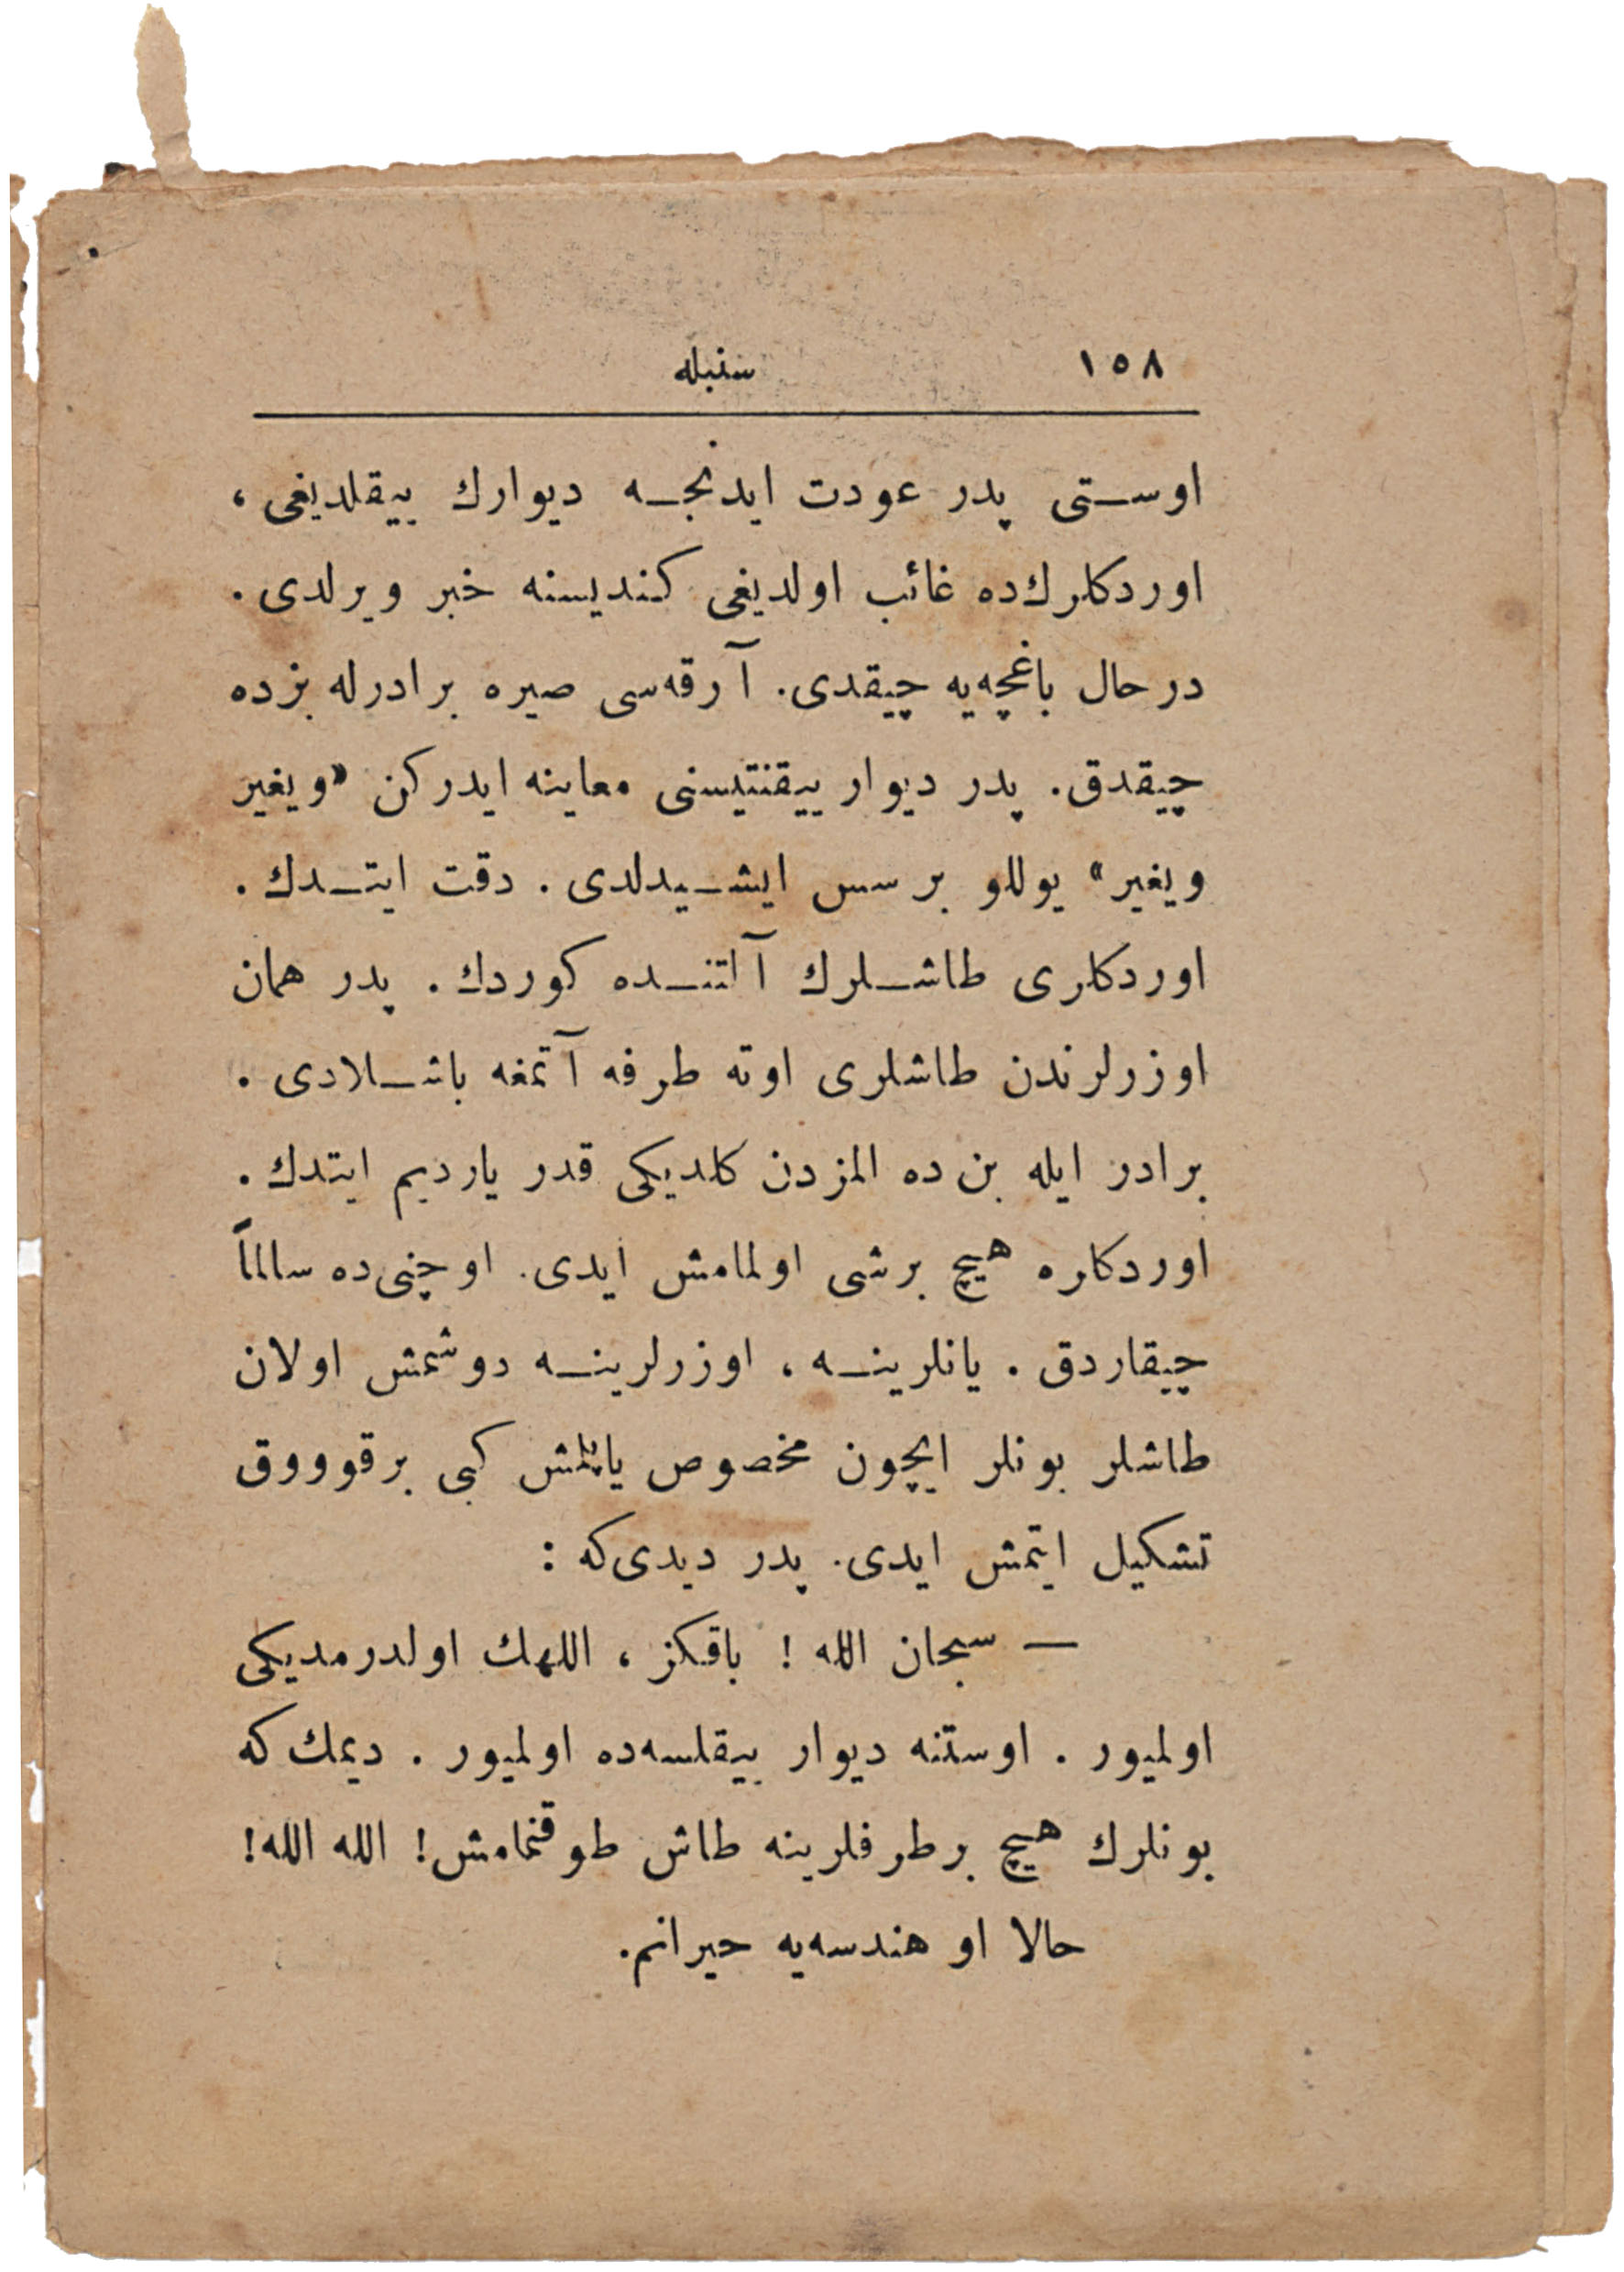 ١٥٨ سنبله
اوستى پدر عودت ايدنجه ديوارك ييقلديغى ،
اوردكلرك‌ده غائب اولديغى كنديسنه خبر ويرلدى .
درحال باغچه‌يه چيقدى. آرقه‌سى صيره برادرله بزده
چيقدق. پدر ديوار ييقنتيسنى معاينه ايدركن «ويغير
ويغير» يوللو بر سس ايشيدلدى . دقت ايتدك .
اوردكلرى طاشلرك آلتنده كوردك . پدر همان
اوزرلرندن طاشلرى اوته طرفه آتمغه باشلادى .
برادر ايله بن ده المزدن كلديكى قدر يارديم ايتدك .
اوردكلره هيچ برشى اولمامش ايدى. اوچنى‌ده سالماً
چيقاردق . يانلرينه ، اوزرلرينه دوشمش اولان
طاشلر بونلر ايچون مخصوص ياپلمش كبى برقوووق
تشكيل ايتمش ايدى. پدر ديدى‌كه :
— سبحان الله ! باقكز ، اللهك اولدرمديكى
اولميور . اوستنه ديوار ييقلسه‌ده اولميور . ديمك كه
بونلرك هيچ برطرفلرينه طاش طوقنمامش! الله الله!
حالا او هندسه‌يه حيرانم.